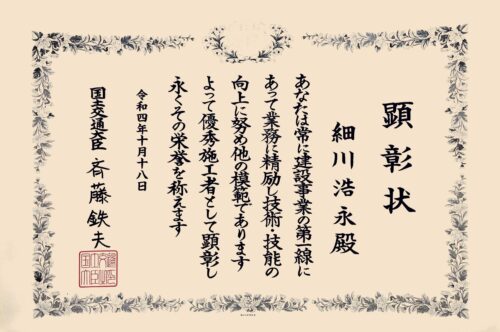 顕彰状
細川浩永殿
あなたは常に建設事業の第一線に
あって業務に精励し技術・技能の
向上に努め他の模範であります
よって優秀施工者として顕彰し
永くその栄誉を称えます
令和四年十月十八日
国土交通大臣 斉藤鉄夫